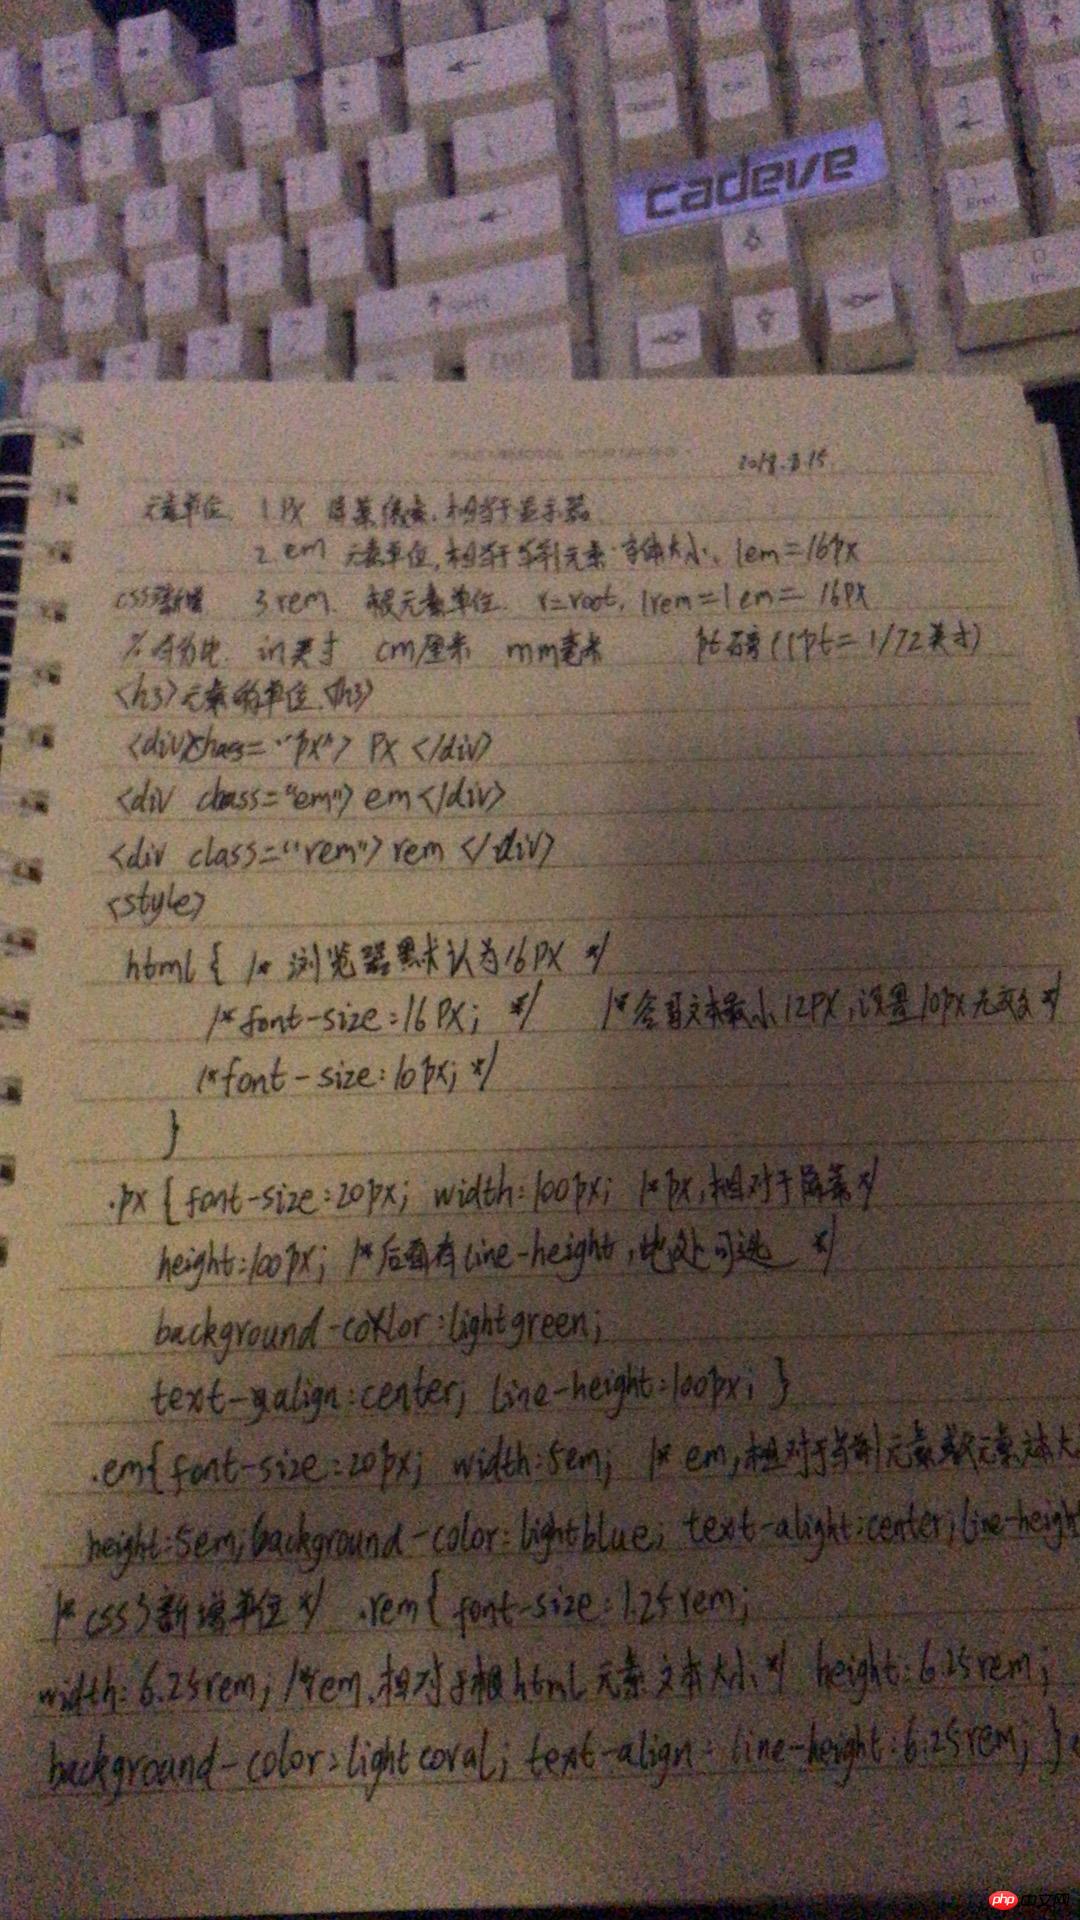 cadeve
2018.3.15
元素单位 1 px 屏幕像素,相当于显示器
2. em 元素单位,相当于当前元素字体大小, 1em=16px
css3新增 3 rem. 根元素单位. r=root, 1rem=1em= 16px
%百分比. in英寸 cm厘米 mm毫米 pt磅(1pt= 1/72英寸)
<h3>元素的单位</h3>
<div class="px"> px </div>
<div class="em"> em </div>
<div class="rem"> rem </div>
<style>
html { /* 浏览器默认为16px */
/*font-size:16px; */ /*谷歌文本最小12px,设置10px无效*/
/*font-size:10px; */
}
.px { font-size:20px; width:100px; /*px,相对于屏幕*/
height:100px; /*后面有line-height,此处可选 */
background-color:lightgreen;
text-align:center; line-height:100px; }
.em{ font-size:20px; width:5em; /* em,相对于当前元素或父元素文本大
height:5em; background-color:lightblue; text-alight:center; line-height
/* css3新增单位 */ .rem{ font-size:1.25rem;
width: 6.25rem; /*rem.相对于根html元素文本大小*/ height:6.25rem;
background-color:lightcoral; text-align: line-height:6.25rem; }
php 中文网